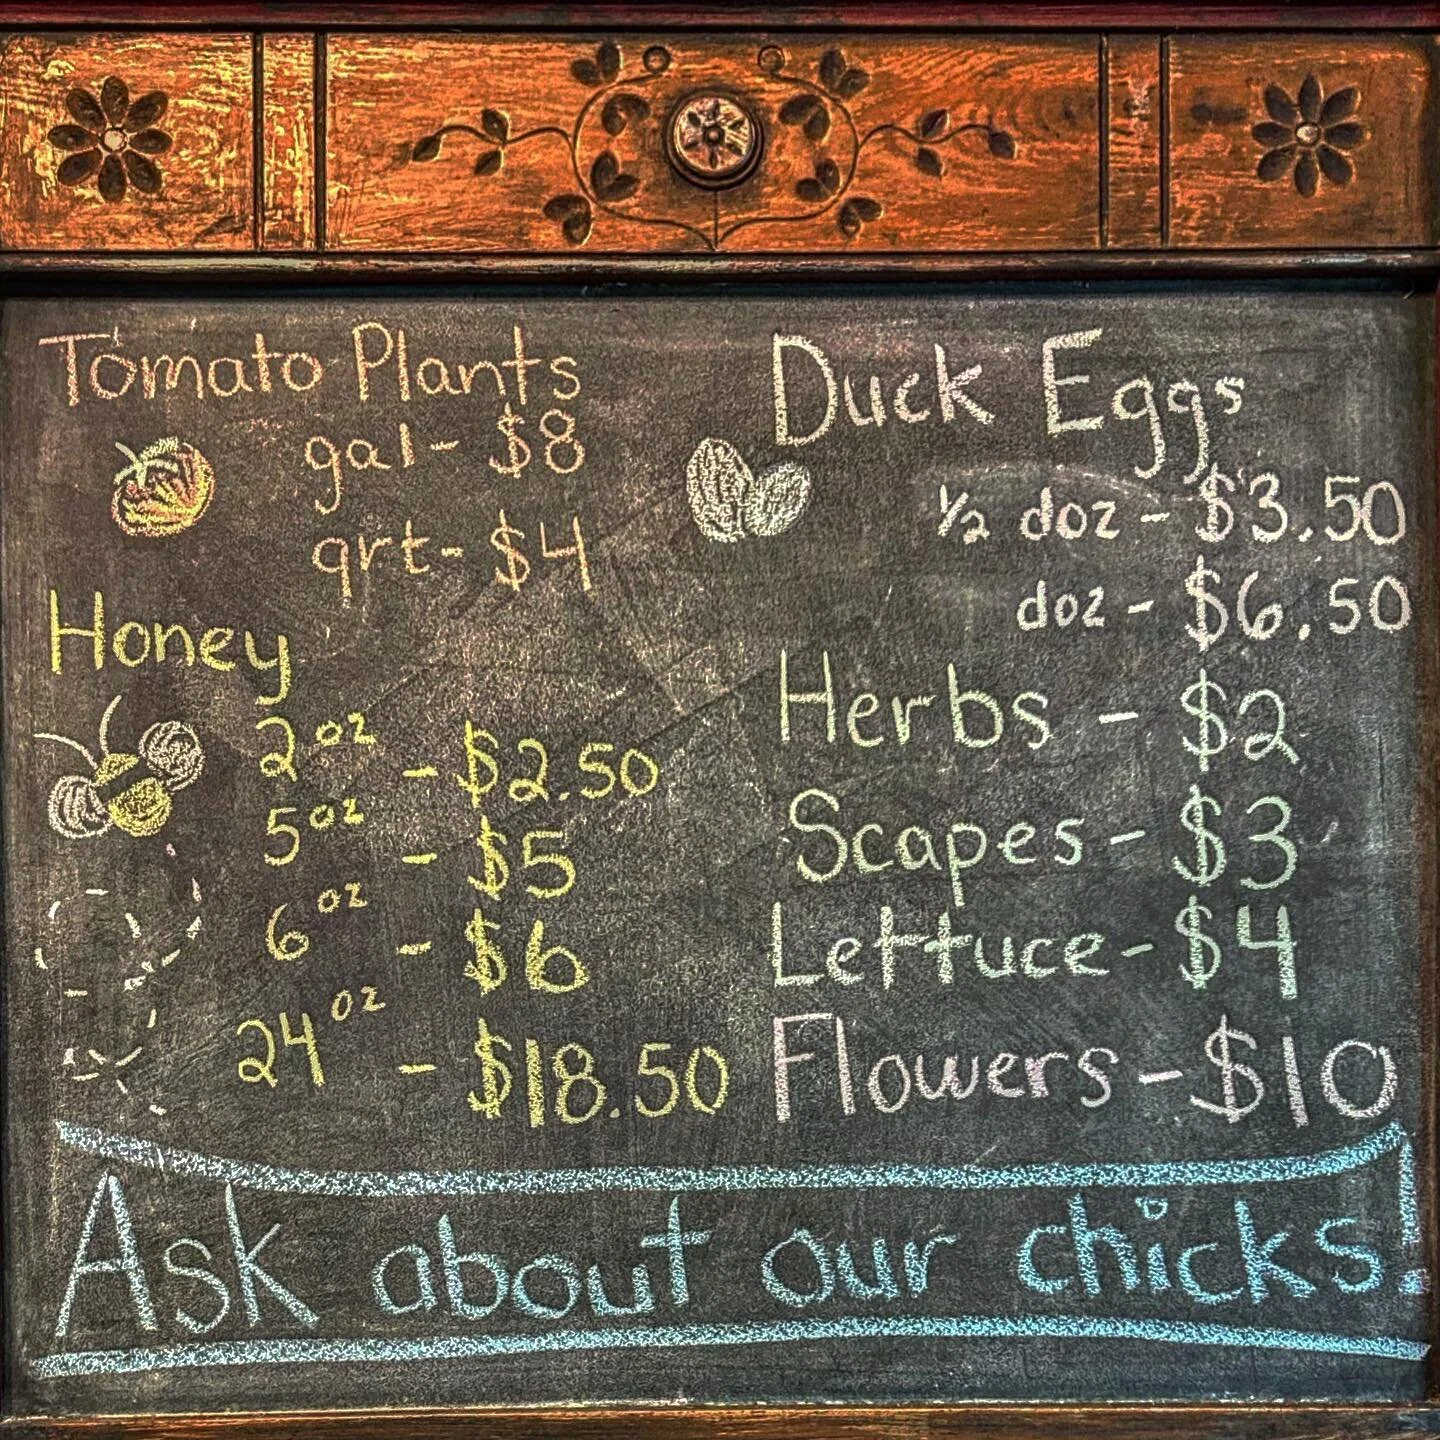 Tomato Plants
gal - $8
qrt - $4
Honey
2 oz - $2.50
5 oz - $5
6 oz - $6
24 oz - $18.50
Duck Eggs
1/2 doz - $3.50
doz - $6.50
Herbs - $2
Scapes - $3
Lettuce - $4
Flowers - $10
Ask about our chicks!